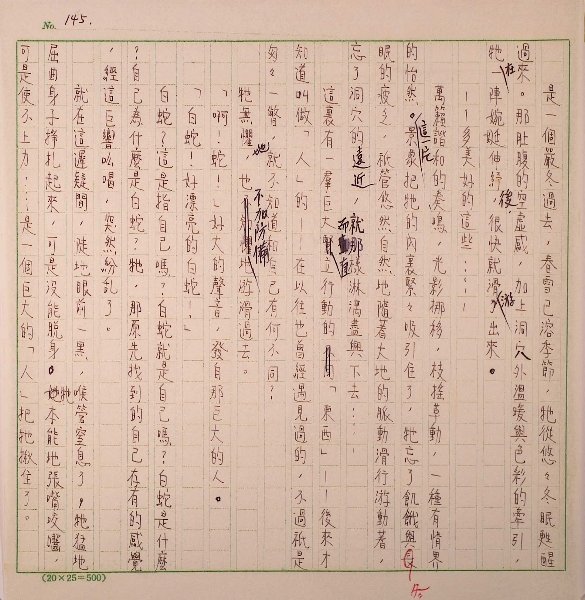 No. 145.
是一個嚴冬過去，春雪已溶季節，牠從悠々冬眠甦醒
過來。那肚腹的空虛感，加上洞穴外溫暖與色彩的牽引，
牠在一陣婉蜒伸紓後，很快就滑游出來。
——多美好的這些……
萬籟諧和的奏鳴，光影挪移，枝搖草動，一種有情界
的怡然。這一片景象把牠的內裏緊々吸引住了，牠忘了飢餓與
眼的疲乏，祇管悠然自然地隨著大地的脈動滑行游動著，
忘了洞穴的遠近，就那淋漓盡興下去……
這裏有一羣巨大而直立行動的「東西」——後來才
知道叫做「人」的——在以往也曾經遇見過的，不過祇是
匆々一瞥，也就不知道和自己有何不同？
牠無懼，也不加防備地游滑過去。
「啊！蛇！」好大的聲音，發自那巨大的人。
「白蛇！好漂亮的白蛇！」
白蛇？這是指自己嗎？白蛇就是自己嗎？白蛇是什麼
？自己為什麼是白蛇？牠，那原先找到的自己存有的感覺
，經這巨響吆喝，突然紛亂了。
就在這遲疑間，陡地眼前一黑，喉管窒息了，牠猛地
屈曲身子掙扎起來，可是沒能脫身。牠本能地張嘴咬噬，
可是使不上力……是一個巨大的「人」把牠揪住了。
(20×25=500)